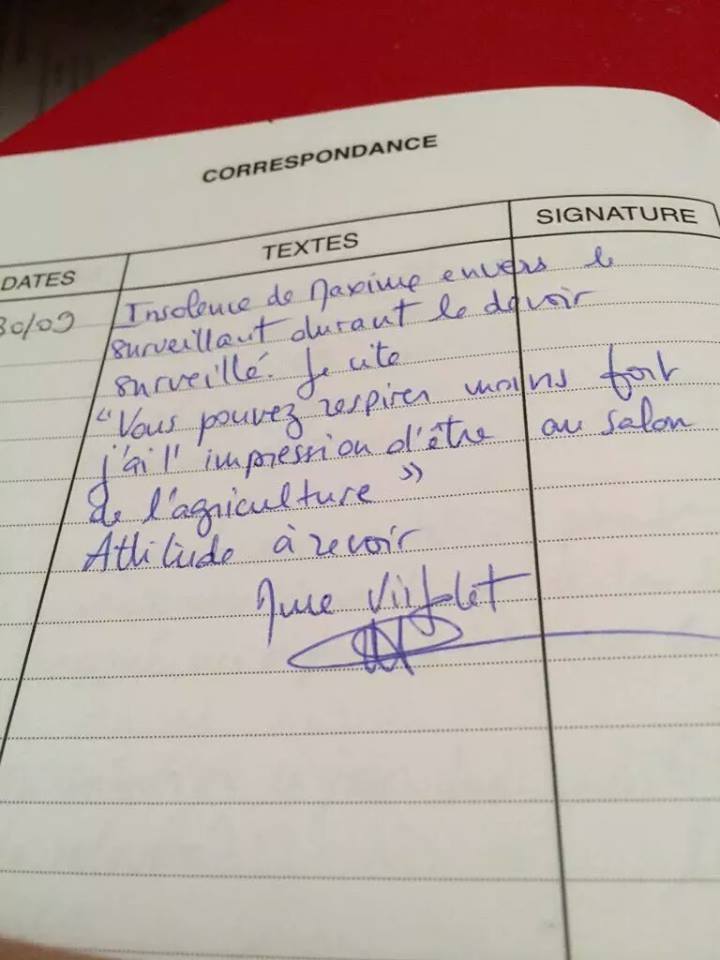 CORRESPONDANCE
DATES TEXTES SIGNATURE
30/09 Insolence de Maxime envers le
surveillant durant le devoir
surveillé. Je cite
"Vous pouvez respirer moins fort
j'ai l'impression d'être au salon
de l'agriculture »
Attitude à revoir
Mme